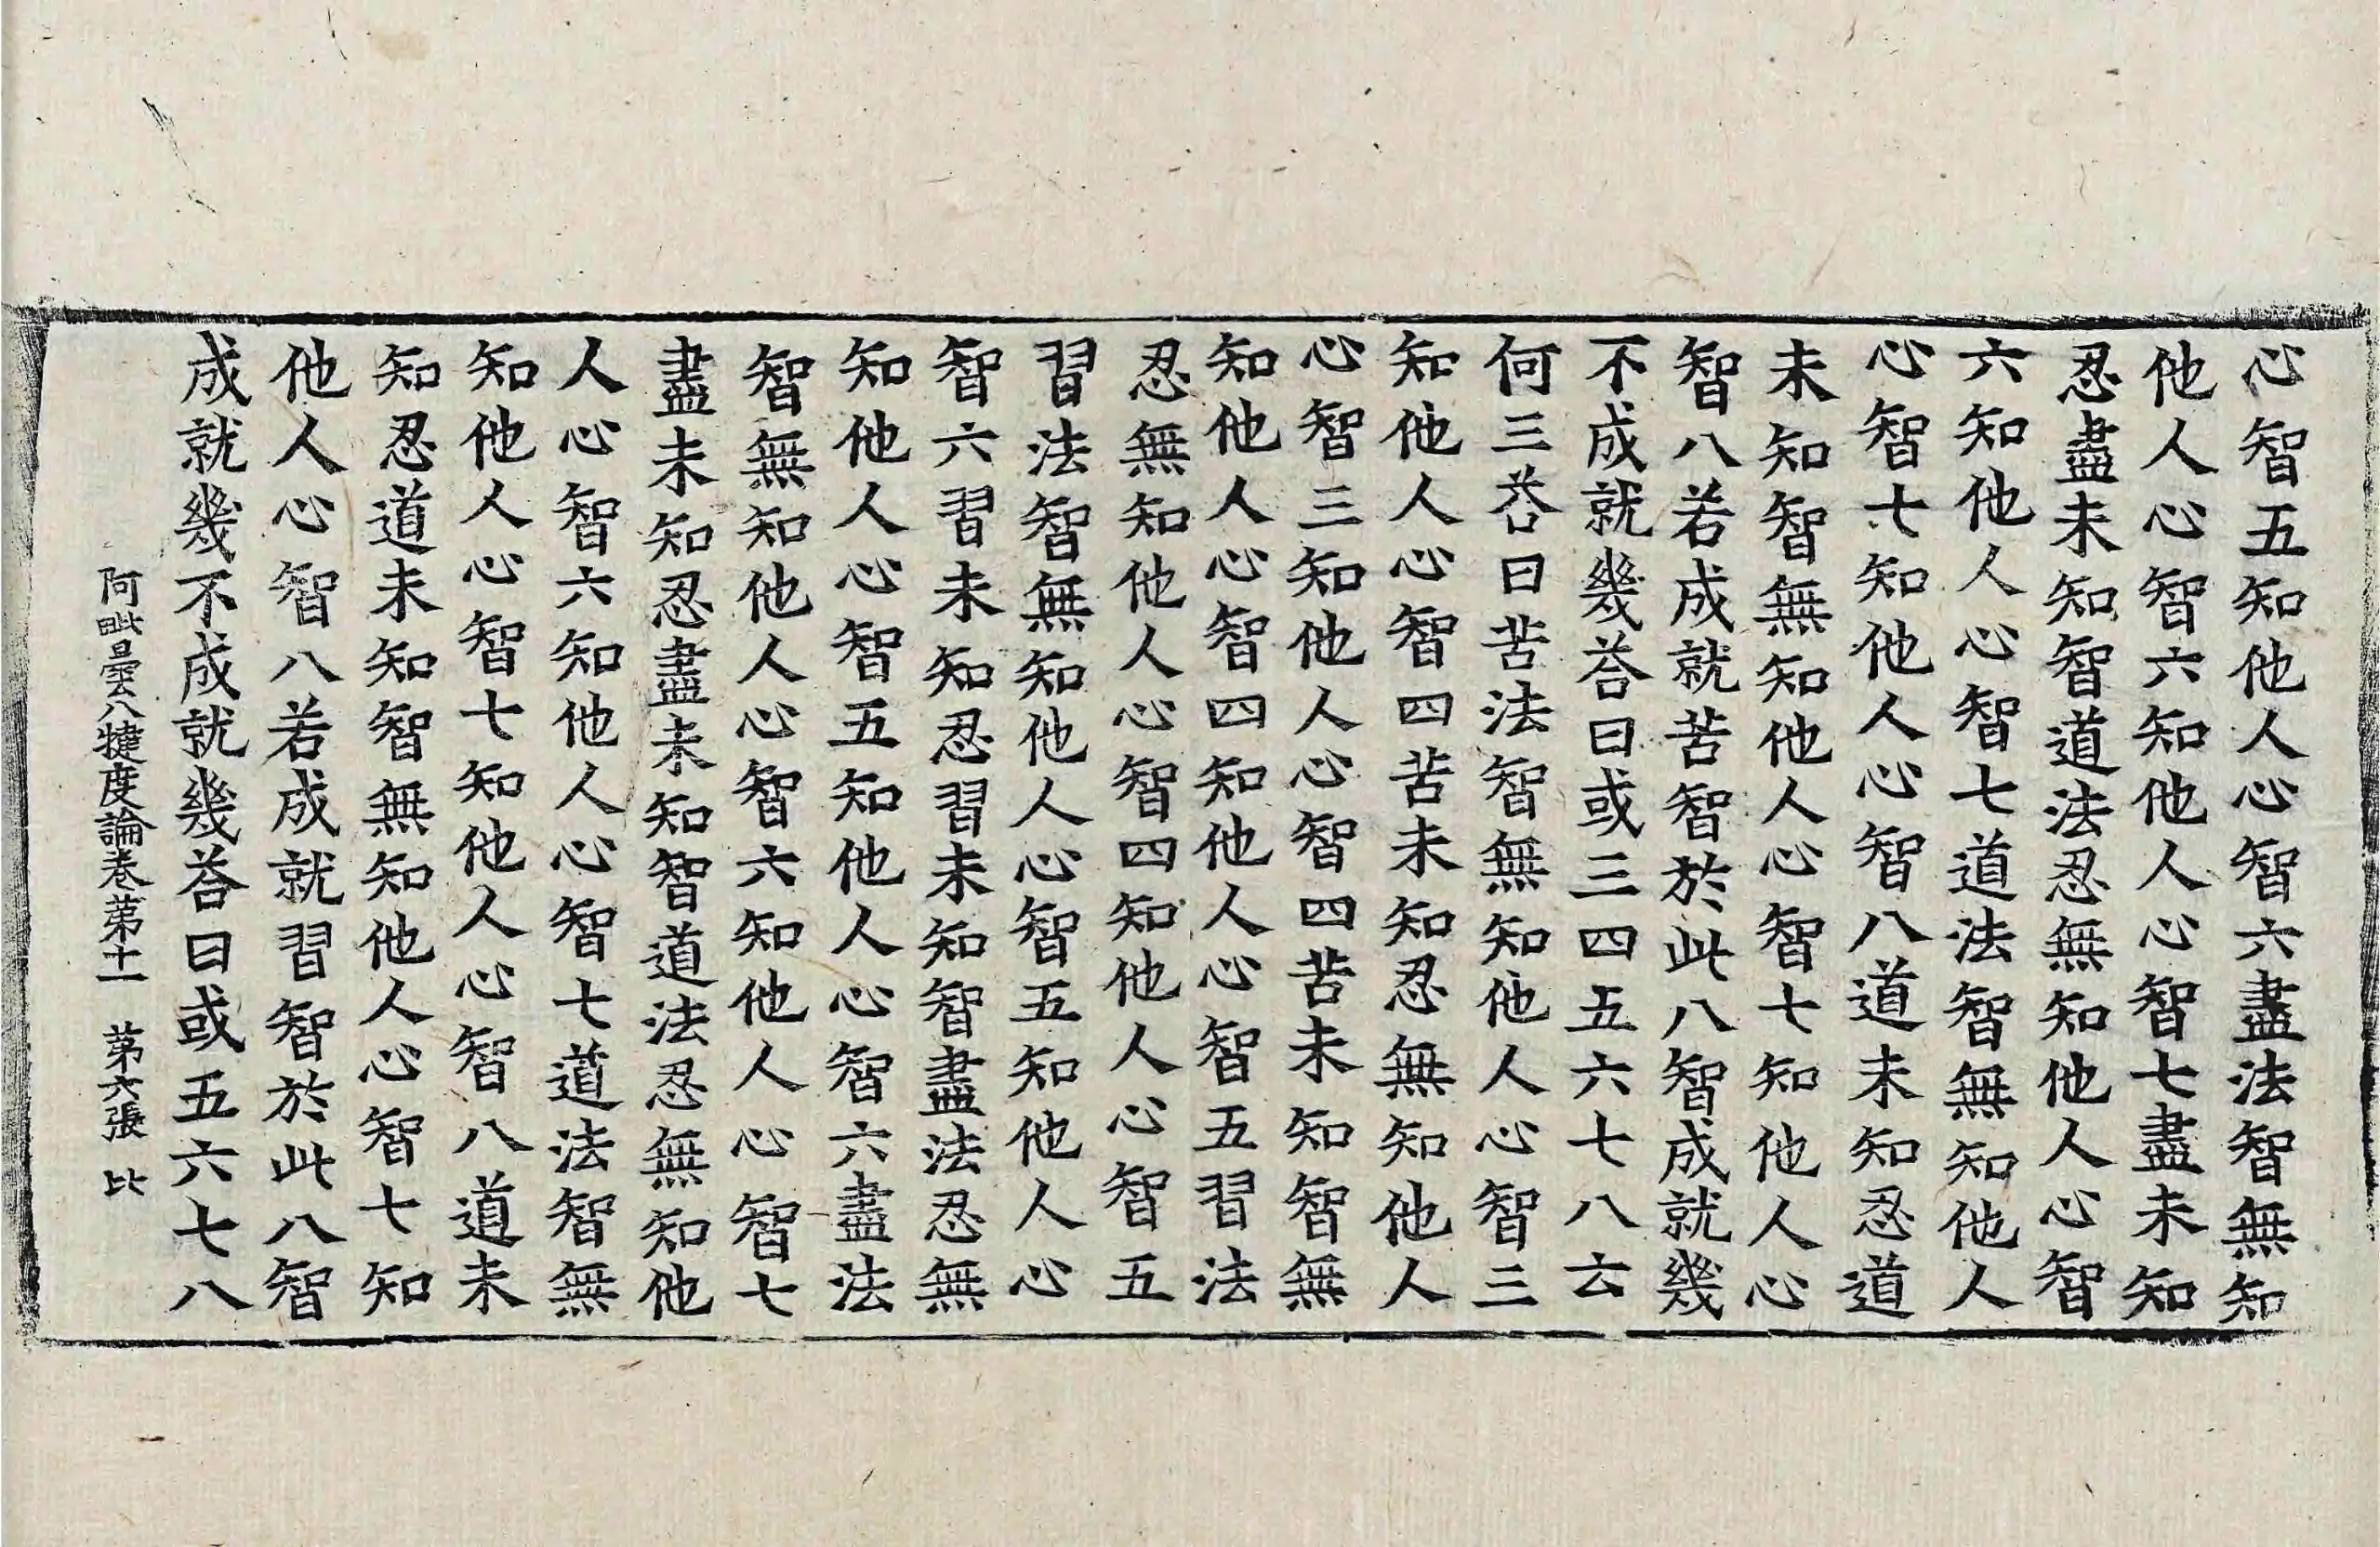 心智五知他人心智六盡法智無知
他人心智六知他人心智七盡未知
忍盡未知智道法忍無知他人心智
六知他人心智七道法智無知他人
心智七知他人心智八道未知忍道
未知智無知他人心智七知他人心
智八若成就苦智於此八智成就幾
不成就幾荅曰或三四五六七八云
何三荅曰苦法智無知他人心智三
知他人心智四苦未知忍無知他人
心智三知他人心智四苦未知智無
知他人心智四知他人心智五習法
忍無知他人心智四知他人心智五
習法智無知他人心智五知他人心
智六習未知忍習未知智盡法忍無
知他人心智五知他人心智六盡法
智無知他人心智六知他人心智七
盡未知忍盡未知智道法忍無知他
人心智六知他人心智七道法智無
知他人心智七知他人心智八道未
知忍道未知智無知他人心智七知
他人心智八若成就習智於此八智
成就幾不成就幾荅曰或五六七八
阿毗曇八犍度論卷第十一 第六張 比